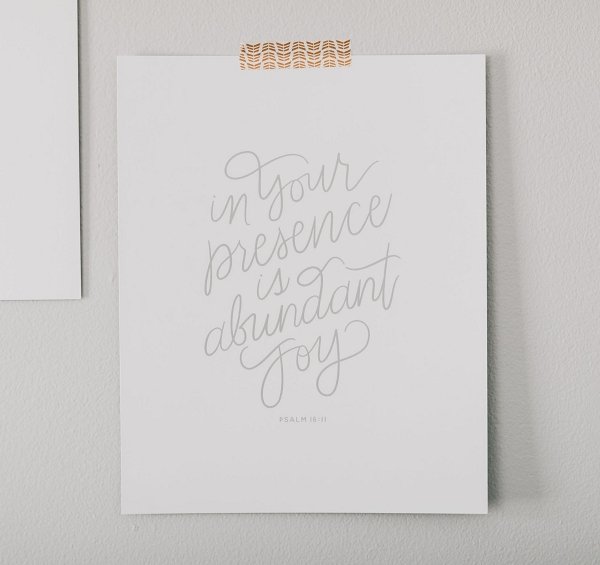 in your
presence
is
abundant
joy
PSALM 16:11